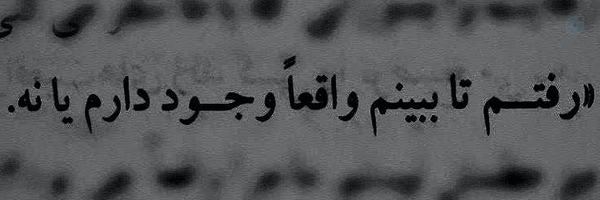 «رفتم تا ببینم واقعاً وجود دارم یا نه.